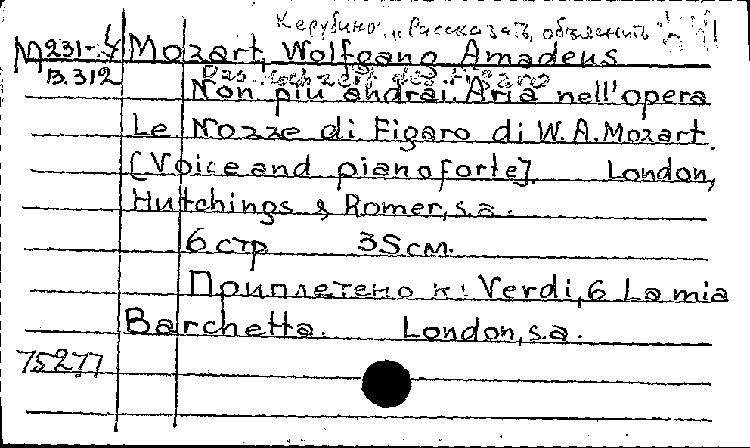 Керубино: "Рассказать, объяснить
М 231-4 Mozart, Wolfgang Amadeus
В.312
Non piu andrai. Aria nell'opera
Le Nozze di Figaro di W.A.Mozart.
[Voice and pianoforte]. London,
Hutchings & Romer, s.a.
6 стр 35см.
Приплетено к: Verdi, 6 La mia
Barchetta. London, s.a.
75277